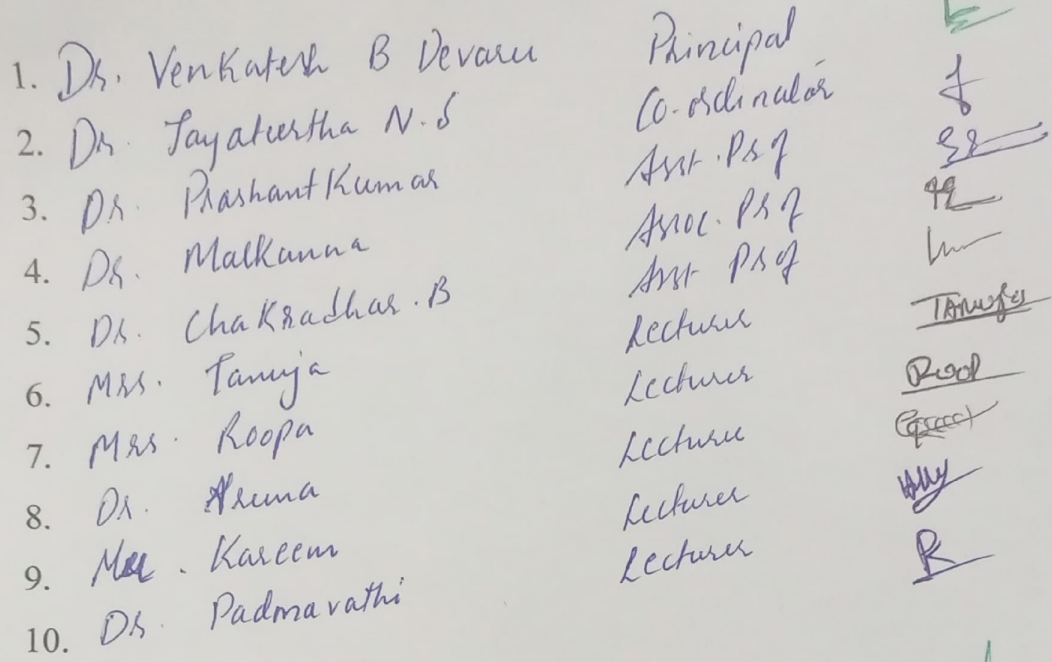 1. Dr. Venkatesh B Devaru Principal
2. Dr. Jayateertha N.S Co-ordinator
3. Dr. Prashant Kumar Asst. Prof
4. Dr. Malkanna Assoc. Prof
5. Dr. Chakradhar. B Asst Prof
6. Mrs. Tanuja Lecturer Tanuja
7. Mrs. Roopa Lecturer Roop
8. Dr. Aruna Lecturer
9. Kareem Lecturer
10. Dr. Padmavathi Lecturer R